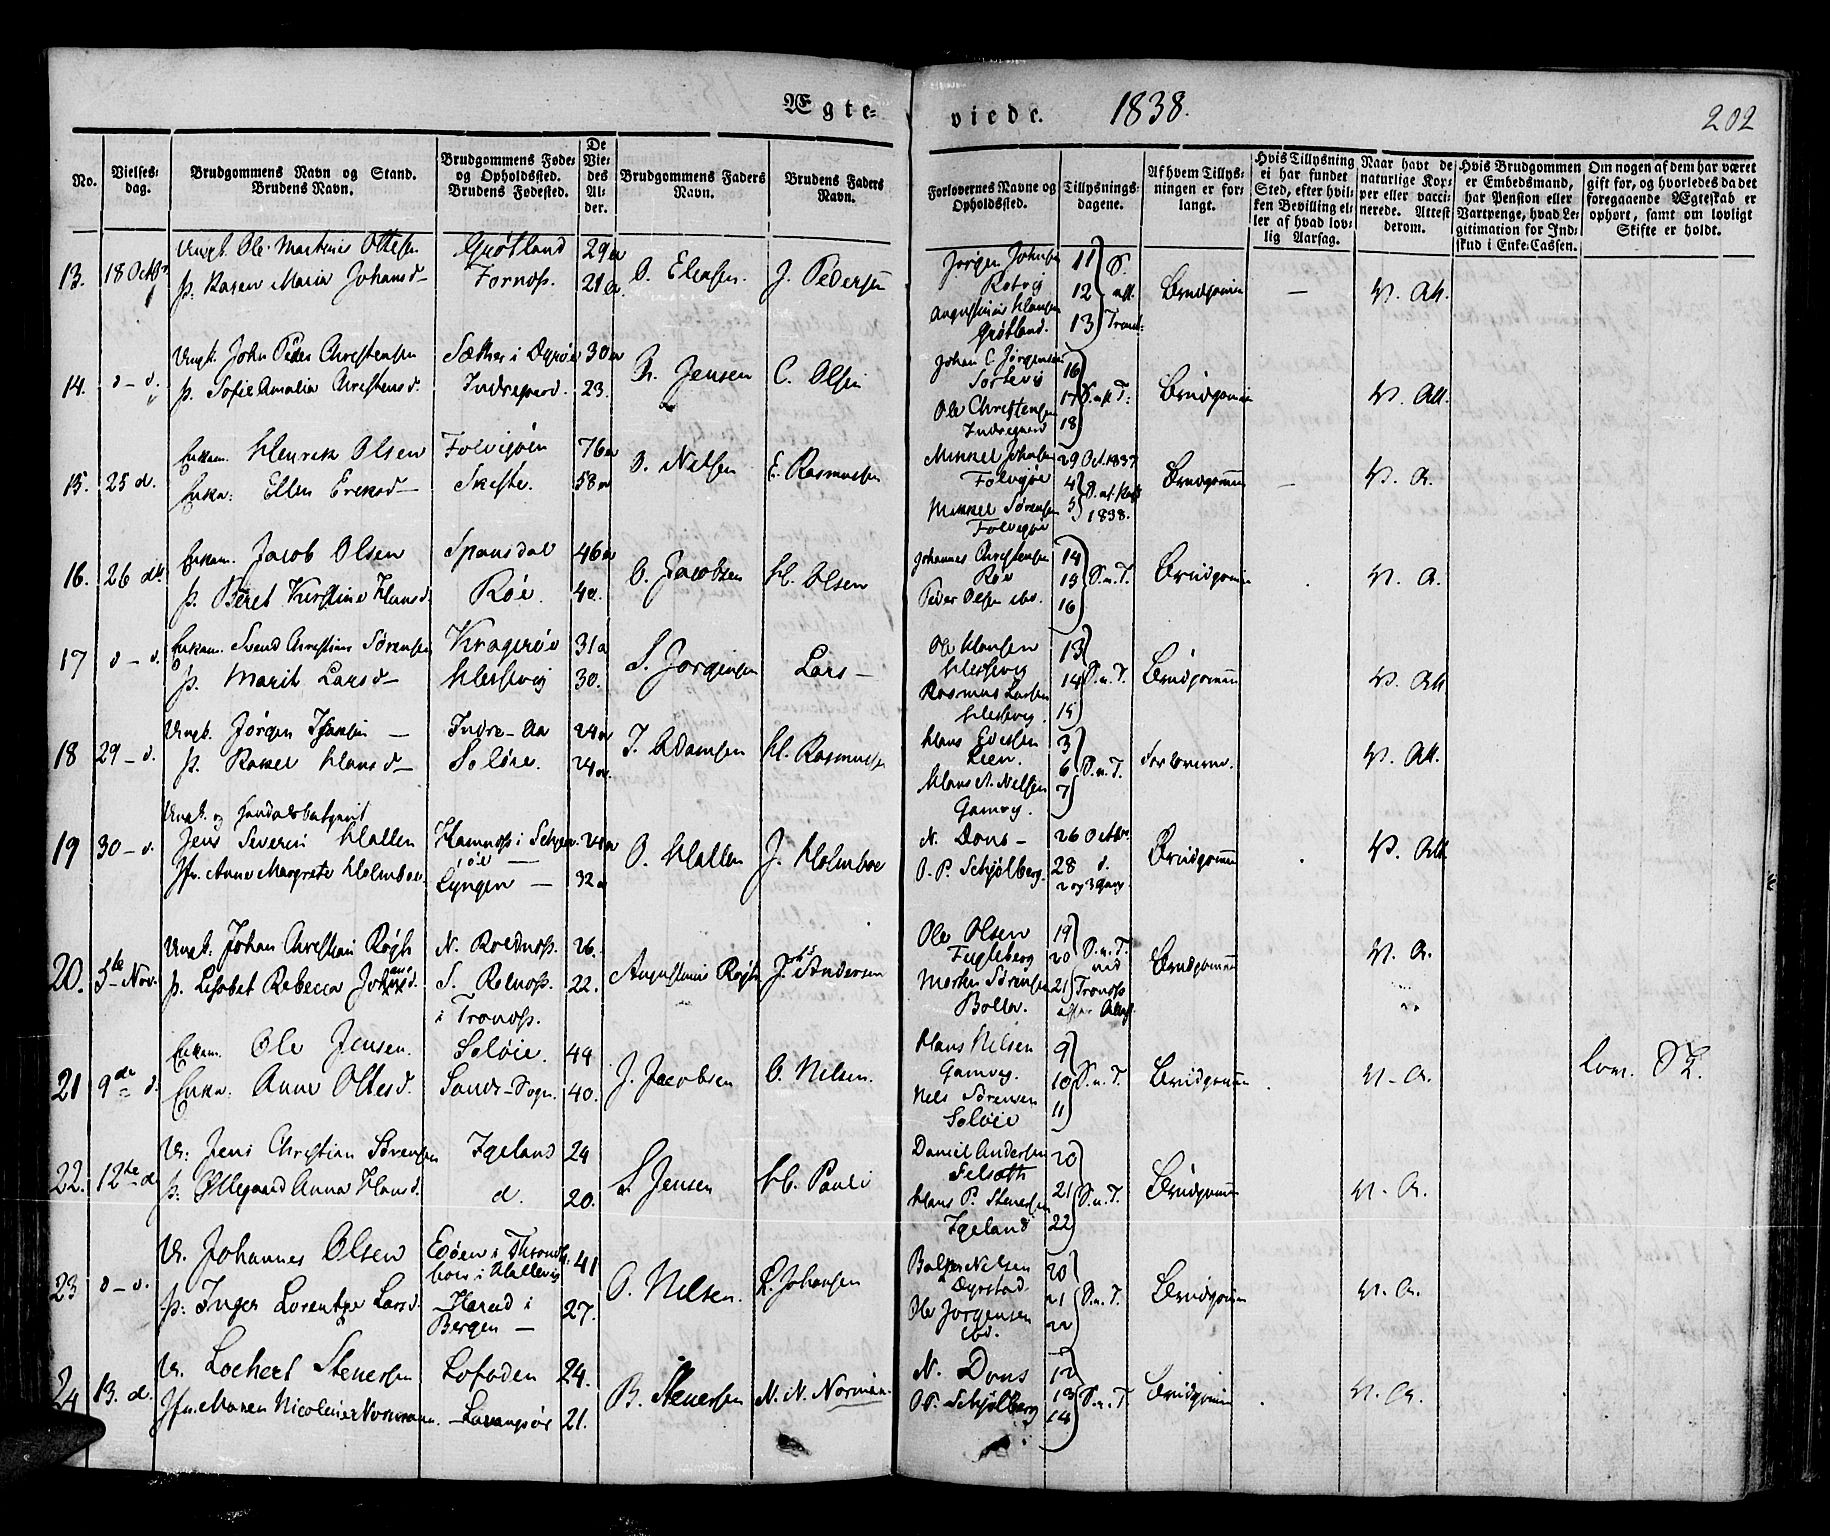 Ægte- viede. 1838. 202
No.
Vielses-dag.
Brudgommens Navn og Stand. Brudens Navn.
Brudgommens Føde- og Opholdssted. Brudens Fødested.
De Viedes Alder.
Brudgommens Faders Navn.
Brudens Faders Navn.
Forlovernes Navne og Opholdssted.
Tillysnings-dagene.
Af hvem Tillysningen er forlangt.
Hvis Tillysning ei har fundet Sted, efter hvilken Bevilling eller af hvad lovlig Aarsag.
Naar havt de naturlige Kopper eller vaccinerede. Attest derom.
Hvis Brudgommen er Embedsmand, har Pension eller Vartpenge, hvad Legitimation for Indskud i Enke-Cassen.
Om nogen af dem har været gift før, og hvorledes da det foregaaende Ægteskab er ophørt, samt om lovligt Skifte er holdt.
Ungk. Ole Martinus Ottesen Grøtland 29
13. 18 Octbr O. Eliasen J. Pedersen Brudgommen — V. Att.
p: Karen Maria Johansd Fornæss. 21
Jørgen Johnsen Rotvig 11 12 13 S.
Augustinus Hansen Grøtland.
Ungk. John Peder Christensen Sæther i Dyrøe 30
14. d – d. Jensen C. Olsen Brudgommen V. Att.
p. Sofie Amalia Christensd. Indregaard. 23.
Johan C. Jørgensen Sørlevig 16 17 18
Ole Christensen Indregaard
Enkem. Henrik Olsen Folvigøen 76
15. 25 d. O. Nilsen E. Rasmussen Brudgommen — V. A.
Enke: Ellen Ericksd— 58
Mikkel Johnsen Folvigøe 29 Oct. 1837
Mikkel Sørensen Folvigøe 4 5 1838.
Enkem. Jacob Olsen Spansdal 46
16. 26 d O. Jacobsen H. Olsen Brudgommen V. A.
p. Beret Kirstine Hansd. Røe. 40.
Johannes Christensen Røe 14 15 16 S. n. T.
Peder Olsen ibd.
Enkem. Svend Christian Sørensen Kragerøe 31
17 d – d. S. Jørgensen Lars — Brudgommen V. Att
p. Marit Larsd— 30.
Ole Hansen 13 14 15 S. n. T.
Rasmus Larsen
Ungk. Jørgen Jensen — Indre-Aa 24
18 29 – d. J. Adamsen H. Rasmussen Forloverne. V. Att.
p. Rakel Hansd— Soløie. 24
Hans Evertsen Lien. 3 6 7 S. n. T.
Hans A. Nilsen Gamvig.
Ungk. og Handelsbetjent
Jens Severin Hallen Havnnæs i Skjervøe 24
19 30 – d. O. Hallen J. Holmboe Brudgommen V. Att
Jfr. Anne Margrete Holmboe. Lyngen — 32
N. Dons – 26 Octbr.
O. P. Schjølberg. 28 d. 2 og 3 Gang.
Ungk. Johan Christian Røgh N. Rolnæss. 26.
20. 5te Nov. Augustinus Røgh J. Andersen Brudgommen V. A.
p. Lisabet Rebecca S. Rolnæss. i Tronæss. 22.
Ole Olsen Fugleberg 19 20 21 S. n. T. ved Tronæss
Morten Sørensen Bolla.
Enkem. Ole Jensen. Soløie. 49
21 9de d. J. Jacobsen O. Nilsen. Brudgommen V – A.
Enke: Anne Ottesd. Sands-Sogn. 40.
Hans Nilsen Gamvig. 9 10 11 S. n. T.
Nils Sørensen Soløie
U: Jens Christian Sørensen Igeland 24
22. 12te d S. Jensen H. Pauli Brudgommen V. A.
p: Ollegaard Anna Hansd. d. 20.
Daniel Andersen Selsæth 20 21 22 S. n. T.
Hans P. Stenersen Igeland
U. Johannes Olsen Edøen i Thrond- 41
23 d – d. O. Nilsen. L. Johansen Brudgommen V. A.
p: Inger Lorentze Larsd. Harud i Bergen — 27.
Balzer Nilsen Dyrstad. 20 21 22 S. n. T.
Ole Jørgensen ibd.
U. Lochert Stenersen Lofoden 24.
24 13. d. B. Stenersen N. N. Norman Brudgommen V. A.
Jfr. Maren Nicoline Norman. Lavangsør 21.
N. Dons 12 13 14 S. n. T.
O. P. Schjølberg